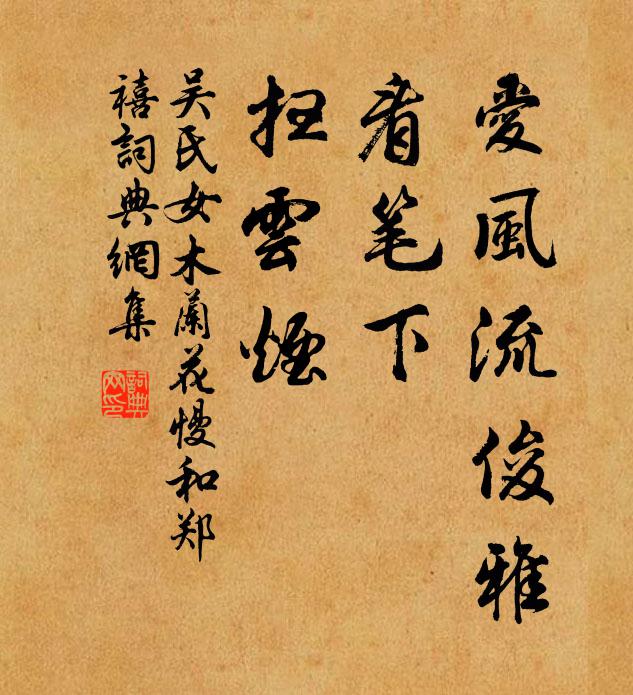 愛風流俊雅
看笔下
扫雲煙
吴氏女木蘭花慢和郑
禧詞典網集
詞典網印